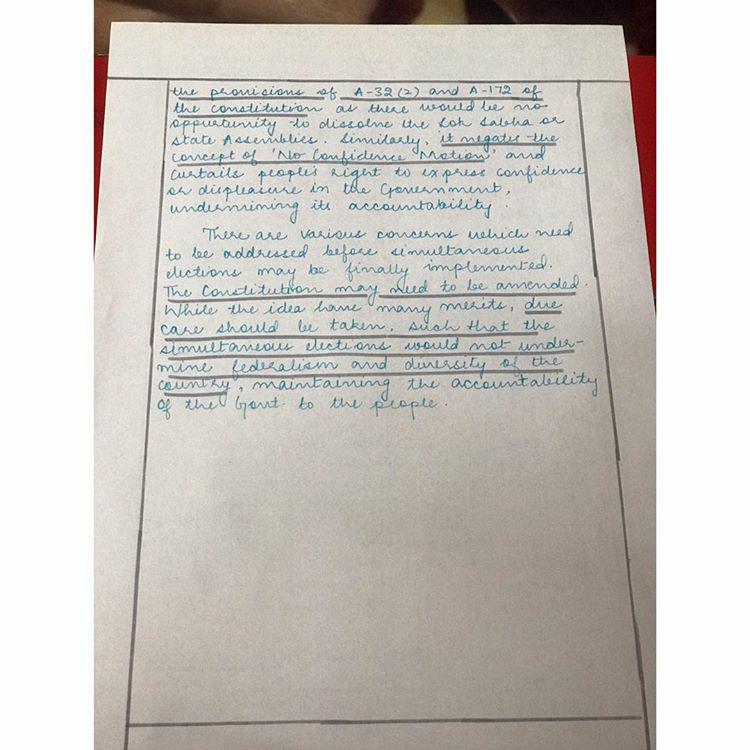 the provisions of A-32(2) and A-172 of
the constitution as there would be no
oppurtunity to dissolve the Lok Sabha or
state Assemblies. Similarly, it negates the
concept of 'No Confidence Motion' and
curtails people's right to express confidence
or displeasure in the Government,
undermining its accountability.
There are various concerns which need
to be addressed before simultaneous
elections may be finally implemented.
The Constitution may need to be amended.
While the idea have many merits, due
care should be taken, such that the
simultaneous elections would not under-
mine federalism and diversity of the
country, maintaining the accountability
of the Govt. to the people.